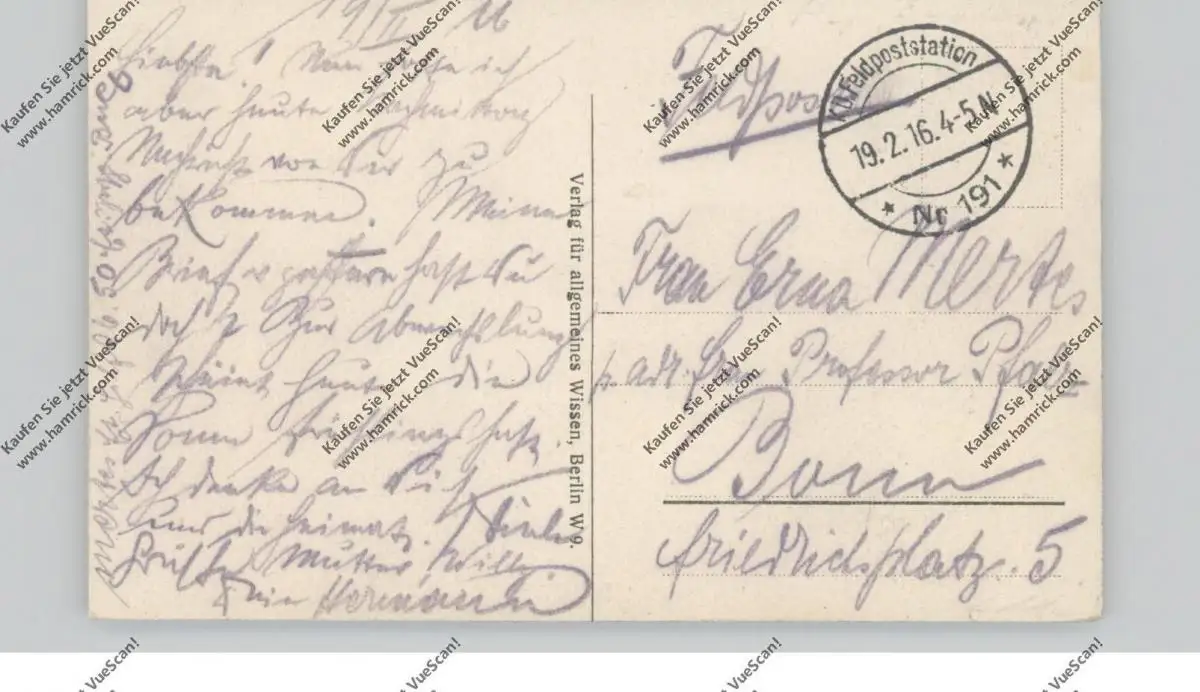 19/II 16
Liebste! Nun hoffe ich
aber heute Nachmittag
Nachricht von Dir zu
bekommen. Meinen
Brief v gestern hast Du
doch? Zur Abwechslung
scheint heute die
Sonne frühlingshaft.
Ich denke an Dich
und die Heimat. Viele
Grüße Mutter, Willy
Dein Hermann
Verlag für allgemeines Wissen, Berlin W 9.
Feldpost
K.D. Feldpoststation
19.2.16. 4-5 N
* Nr 191 *
Frau Erna Mertes
p. adr. Frau Professor
Bonn
Friedrichsplatz. 5
Kaufen Sie jetzt VueScan!
www.hamrick.com